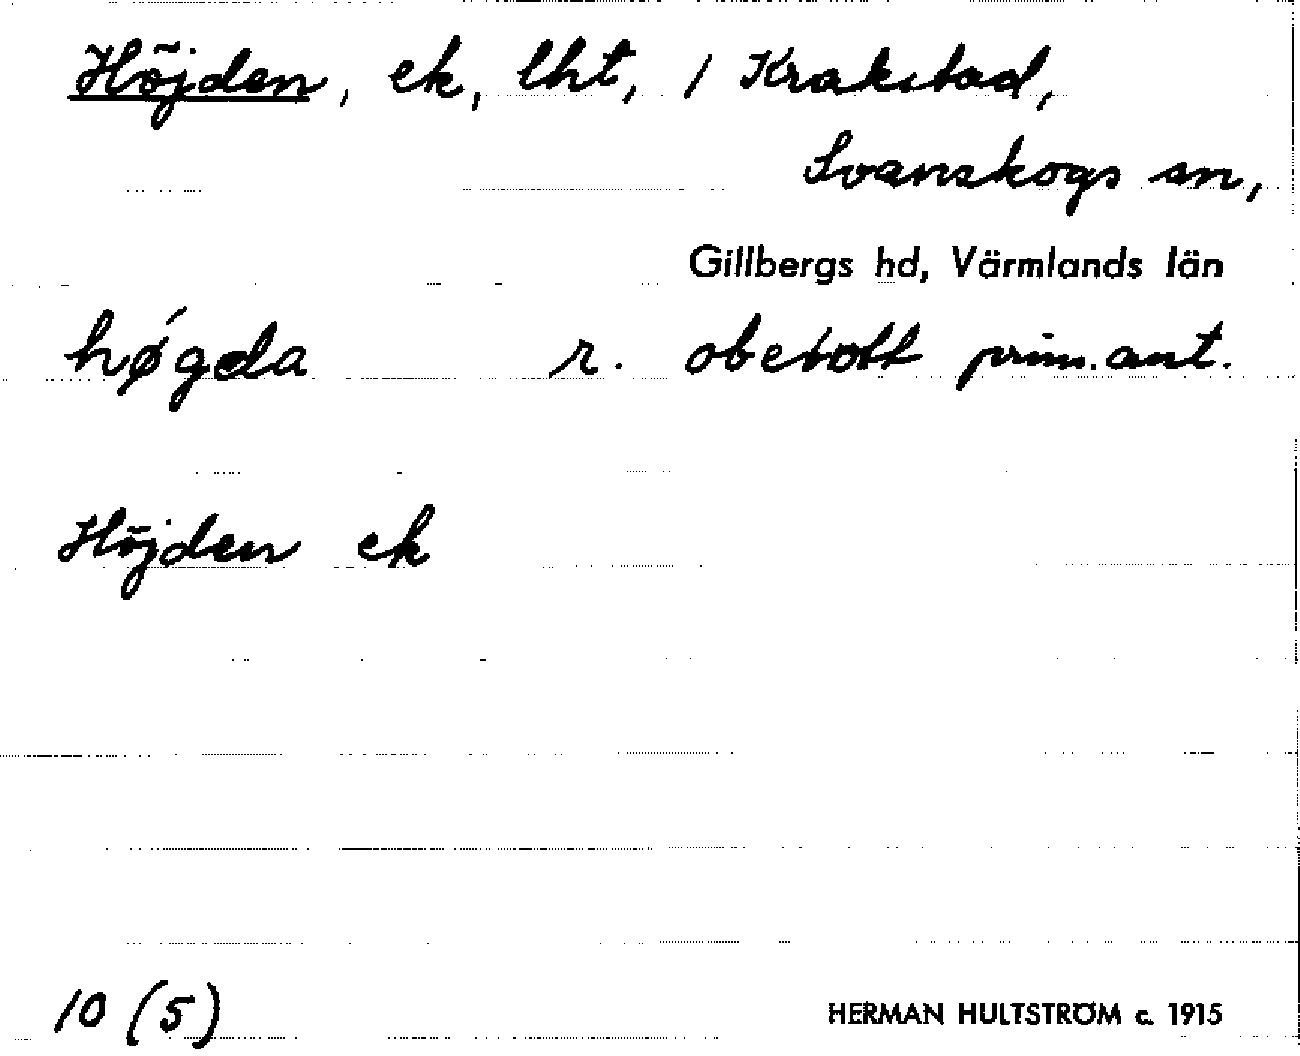 Höjden, ek, lht, / Krakstad,
Svanskogs sn,
Gillbergs hd, Värmlands län
hǿgda r. obetott prim. ant.
Höjden ek
10 (5)
HERMAN HULTSTRÖM c. 1915